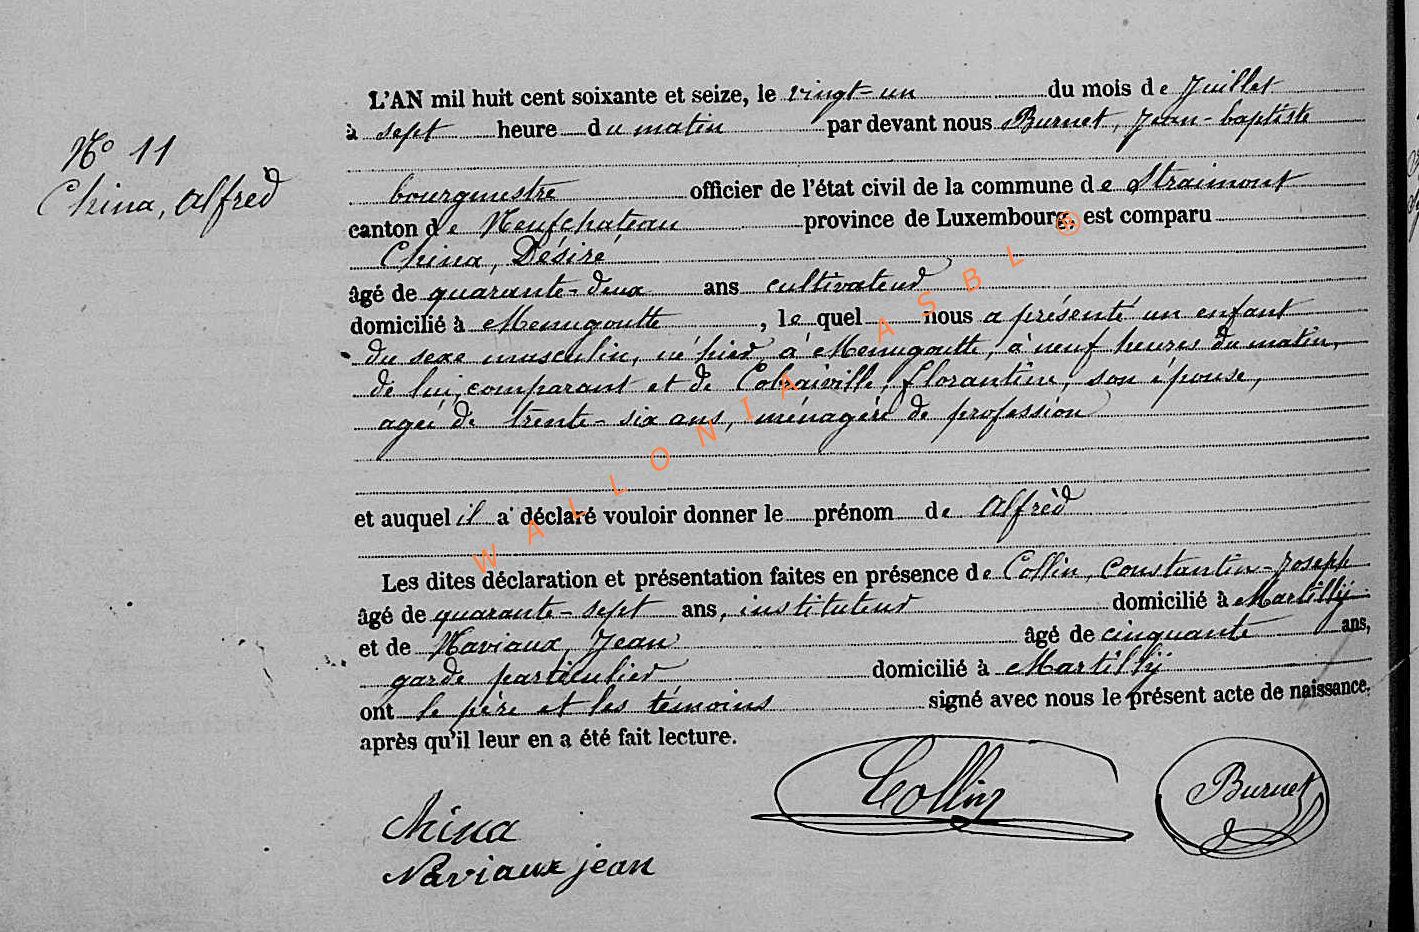 N° 11
China, Alfred
L'AN mil huit cent soixante et seize, le vingt-un du mois de Juillet
à sept heure du matin par devant nous Burnet, Jean-baptiste
bourgmestre officier de l'état civil de la commune de Straimont
canton de Neufchateau province de Luxembourg, est comparu
China, Désiré
âgé de quarante-deux ans cultivateur
domicilié à Menugoutte, le quel nous a présenté un enfant
du sexe masculin, né hier, à Menugoutte, à neuf heures du matin,
de lui, comparant et de Florantine, son épouse,
agée de trente-six ans, ménagère de profession
et auquel il a déclaré vouloir donner le prénom de Alfred
Les dites déclaration et présentation faites en présence de Collin, Constantin-Joseph
âgé de quarante-sept ans, instituteur domicilié à Martilly
et de Naviaux, Jean âgé de cinquante ans,
garde particulier domicilié à Martilly
ont le père et les témoins signé avec nous le présent acte de naissance,
après qu'il leur en a été fait lecture.
Collin
Burnet
China
Naviaux jean
WALLONIA ASBL ®